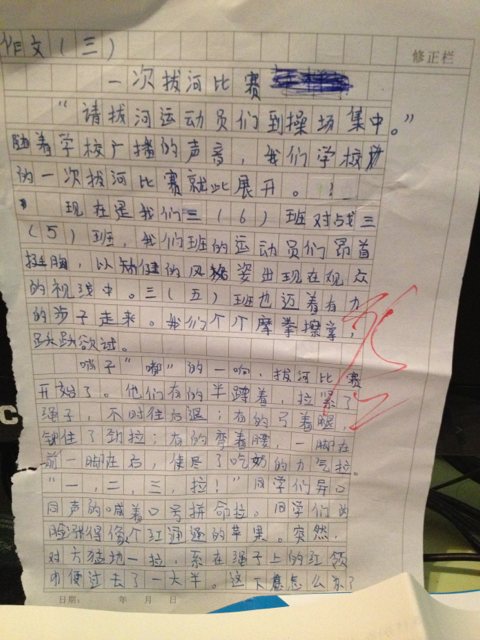 作文(三)
修正栏
一次拔河比赛
“请拔河运动员们到操场集中。”
随着学校广播的声音，我们学校
的一次拔河比赛就此展开。
现在是我们三(6)班对战三
(5)班，我们班的运动员们昂首
挺胸，以矫健的风姿出现在观众
的视线中。三(五)班也迈着有力
的步子走来。我们个个摩拳擦掌，
跃跃欲试。
哨子“嘟”的一响，拔河比赛
开始了。他们有的半蹲着，拉紧了
绳子，不时往后退；有的弓着腿，
铆住了劲拉；有的弯着腰，一脚在
前一脚在后，使尽了吃奶的力气拉。
“一，二，三，拉！”同学们异口
同声的喊着口号拼命拉。同学们的
脸张得像个红通通的苹果。突然，
对方猛地一拉，系在绳子上的红领
巾便过去了一大半。这下怎么办？
日期： 年 月 日